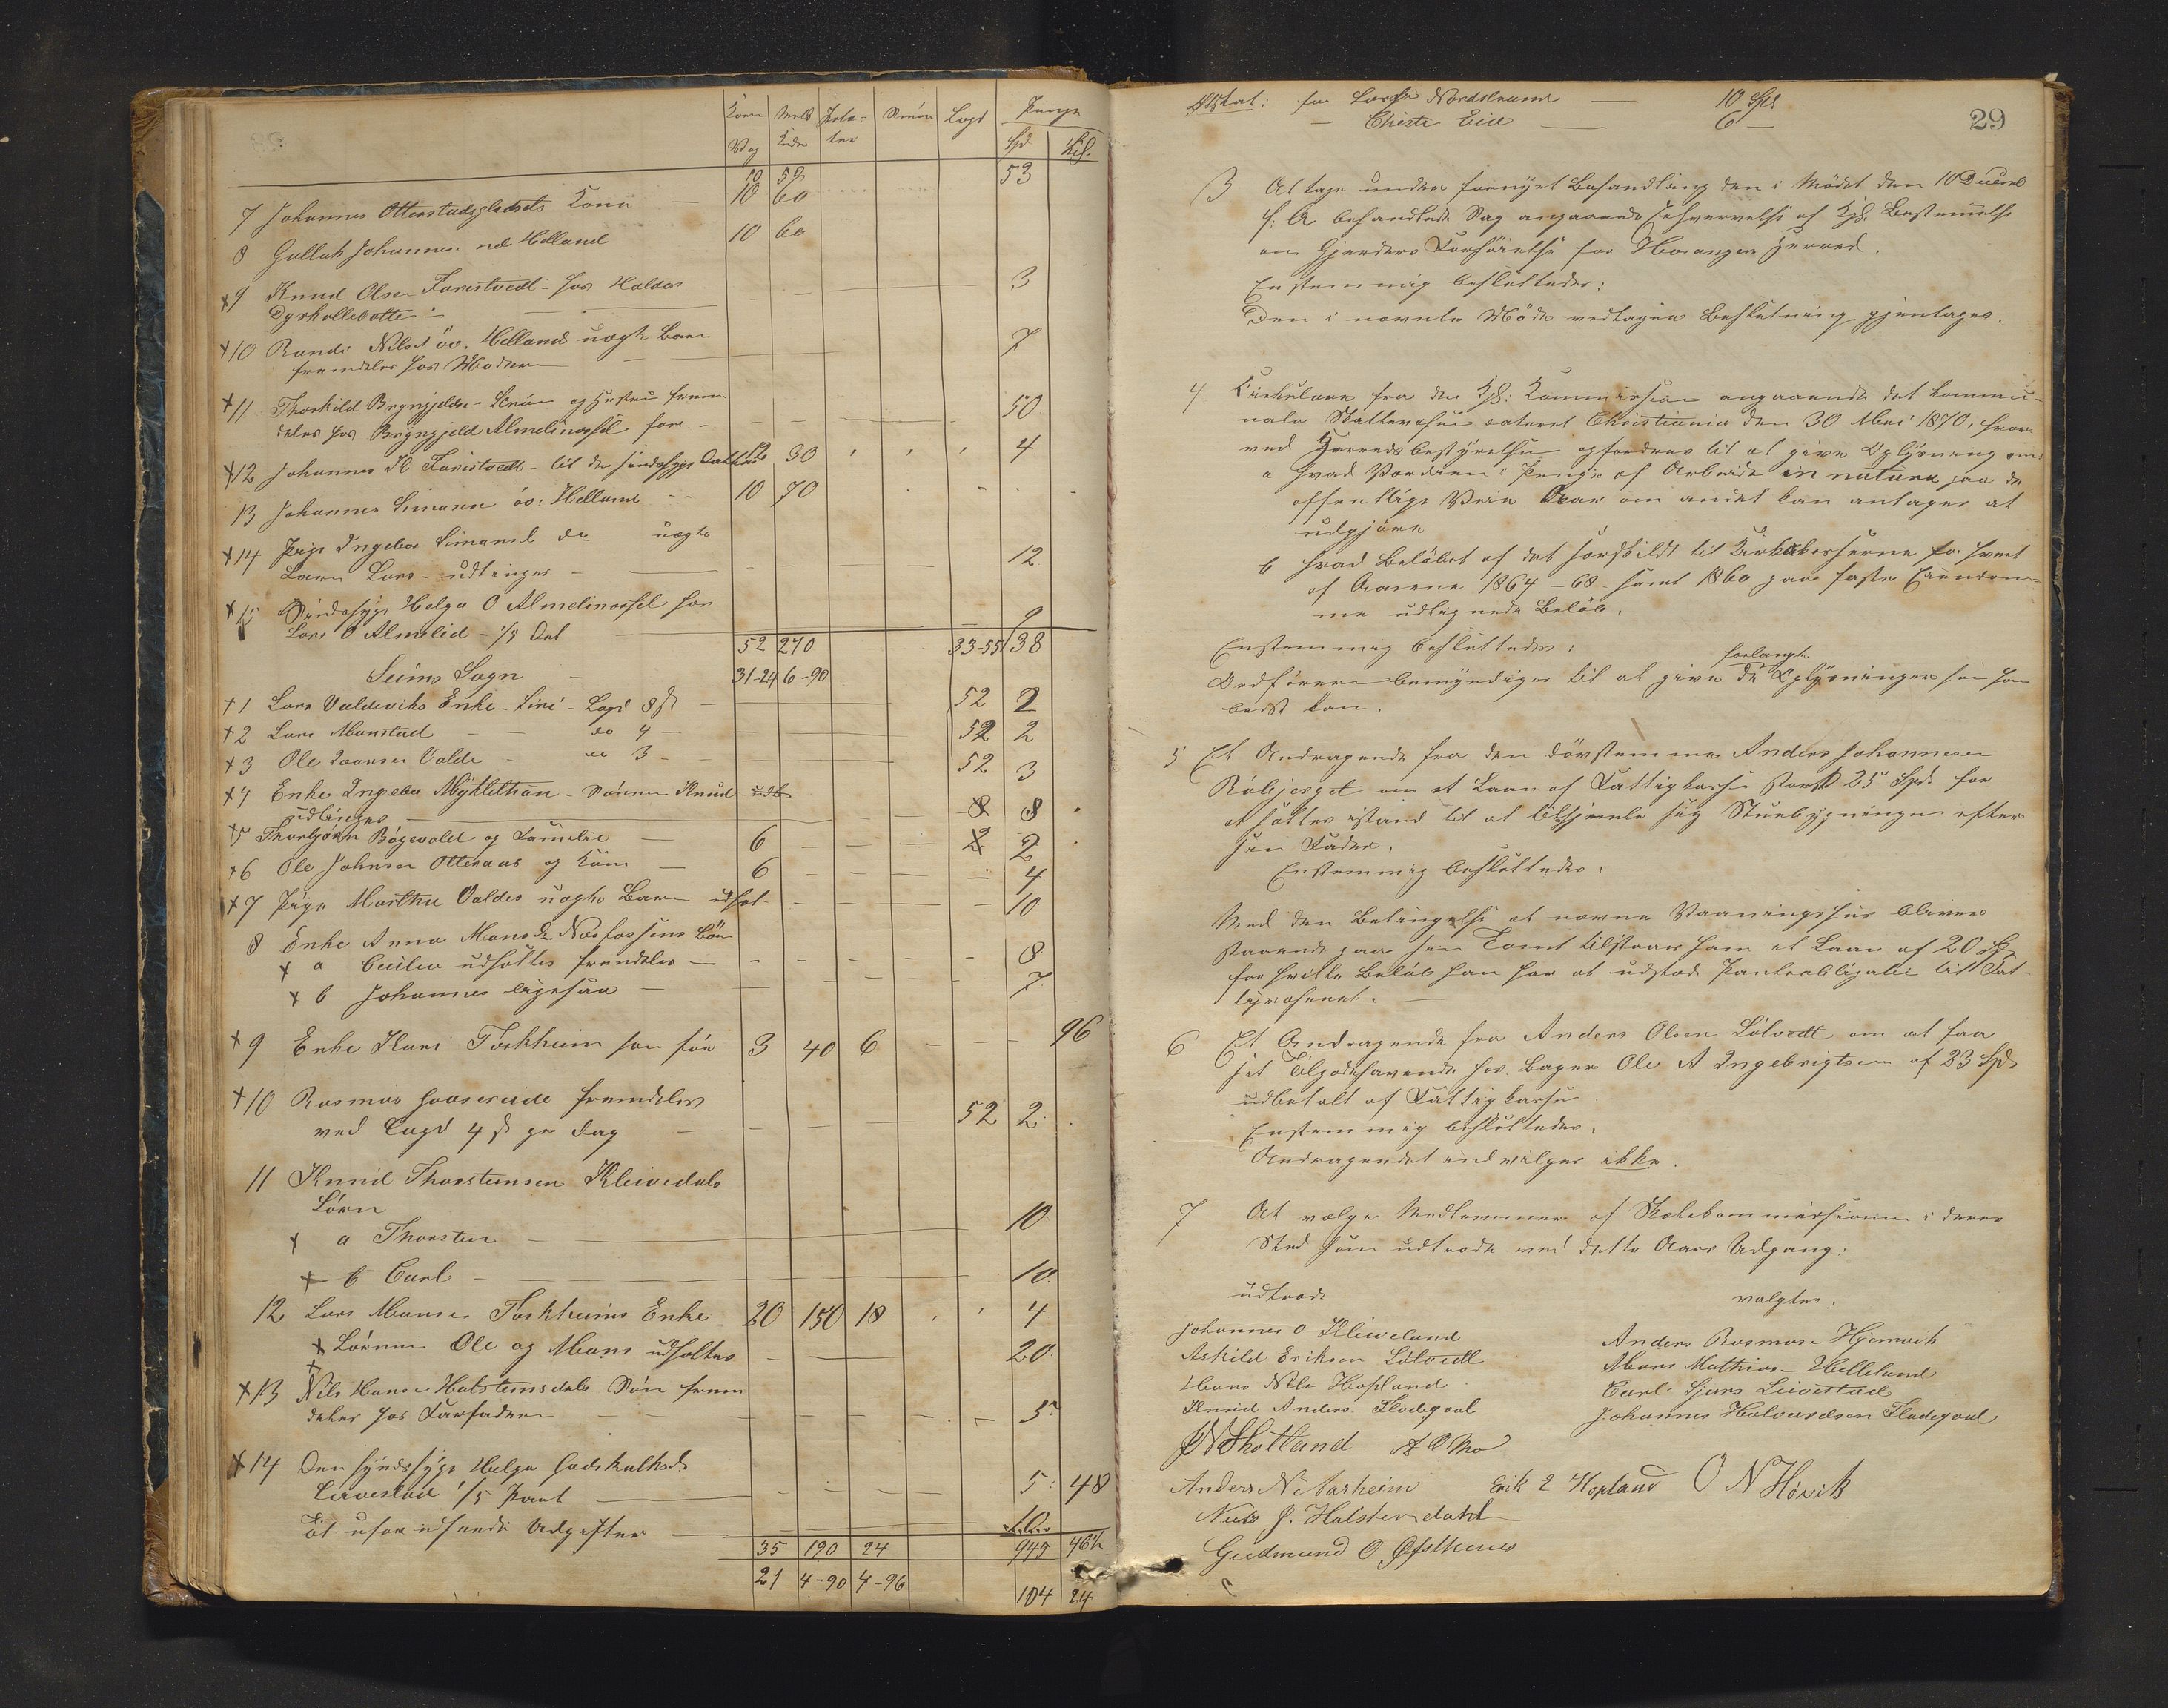 Korn Melk Pote- Smör Lægd Penge
Vog Kder ter Spd Sk.
10 50 53
7 Johannes Otterstadspladsets Kone — 10 60
8 Gullak Johannes. ned Helland 10 60
x9 Knud Olsen Farestvedt - hos Haldor 3
Dyrkollebotten —
x10 Randi Nilsd öv. Hellands uægte Barn 7
fremdeles hos Moderen —
x11 Thorkild Brynjelds. og Hustru frem- 50
deles hos Brynjeld Almelinossel for —
x12 Johannes K Farestvedt - til den sindssyge Datter 12 30 4
13 Johannes Simonsen öv. Helland — 10 70
x14 Pige Ingebor Simonsd do uægte
Barn Lars - udtinges — 12
x15 Sindssyge Helga O Almelinossel hos
Lars O Almelid - 1/5 Del — 9
52 270 33-55 138
Seims Sogn — 31-24 6-90
x1 Lars Valdeviks Enke - Siri - Lægd 8 s — 52 2
x2 Lars Monstad — do 4 — 52 2
x3 Ole Valde — do 3 — 52 3
x4 Enke Ingebor Myklethun - Sönnen Knud
udtinges — 8 8
x5 Thorbjörn Bögevold og Familie — 6 2 2
x6 Ole Johnsen Otteraas og Kone — 6 4
x7 Pige Martha Valdes uægte Barn udsat — 10
8 Enke Anna Monsd Næsfossens Börn
x a Cecilia udsættes fremdeles — 8
x b Johannes ligesaa — 7
x9 Enke Kari Toskheim som för 3 40 6 96
x10 Rasmus fremdeles
ved Lægd 4 s pr Dag 52 2
11 Knud Thorsteinsen Kleivedals
Börn
x a Thorsten — 10
x b Carl — 10
12 Lars Monsen Toskheims Enke 20 150 18 4
x Börnene Ole og Mons udsættes — 20
x13 Nils Hansen Halsteinsdals Sön frem-
deles hos Farfaderen — 5
x14 Den sindssyge Helga Godskalksd.
1/5 Part — 5 48
Til uforudseede Udgifter —
35 190 24 949 46½
21 4-90 4-96
104 24
for Nordstrand — 10 Spd
— Christi Eide — 6 — 29
3 At tage under fornyet Behandling den i Mödet den 10 Decemb
f. A behandlede Sag angaaende Erhvervelse af Kgl. Bestemmelse
om Gjærders Forhöielse for Hosanger Herred.
Enstemmig besluttedes:
Den i nævnte Möde vedtagne Beslutning gjentages.
4 Cirkulære fra den Kgl. Kommission angaaende det kommu-
nale Skattevæsen dateret Christiania den 30 Mai 1870, hvor-
ved Herredsbestyrelsen opfordres til at give Oplysning om
a hvad Værdien i Penge af Arbeide in natura paa de
offentlige Veie Aar om andet kan antages at
udgjöre
b hvad Belöbet af det særskildt til Kirkekasserne for hvert
af Aarene 1864 - 68 samt 1860 paa faste Eiendom-
me udlignede Belöb.
Enstemmig besluttedes:
forlangte
Ordföreren bemyndiges til at give de Oplysninger som han
bedst kan.
5 Et Andragende fra den dövstumme Anders Johannesen
Röbjerget om et Laan af Fattigkassen stort 25 Spd. for
at sættes istand til at tilhjemle sig Stuebygningen efter
sin Fader.
Enstemmig besluttedes:
Med den Betingelse at nævnte Vaaningshus bliver
staaende paa sin Tomt tilstaaes ham et Laan af 20 Sp
for hvilke Belöb han har at udstede Panteobligation til Fat-
tigvæsenet.
6 Et Andragende fra Anders Olsen Lötvedt om at faa
sit Tilgodehavende hos Bager Ole A Ingebrigtsen af 23 Spd
udbetalt af Fattigkassen
Enstemmig besluttedes.
Andragendet indvilges ikke.
7 At vælge Medlemmer af Skolekommissionen i deres
Sted som udtræde med dette Aars Udgang:
udtræde valgtes:
Johannes O Kleiveland Anders Rasmus. Hjemvik
Askild Eriksen Lötvedt Mons Mathias. Helleland
Hans Nils. Hopland Carl Sjurs. Leivestad
Knud Anders. Fladegaal Johannes Halvardsen Fladegaal
N Skotland A O Mo
Anders N Aasheim Erik E Hopland O N Hövik
Niels J. Halstendahl
Gudmund O